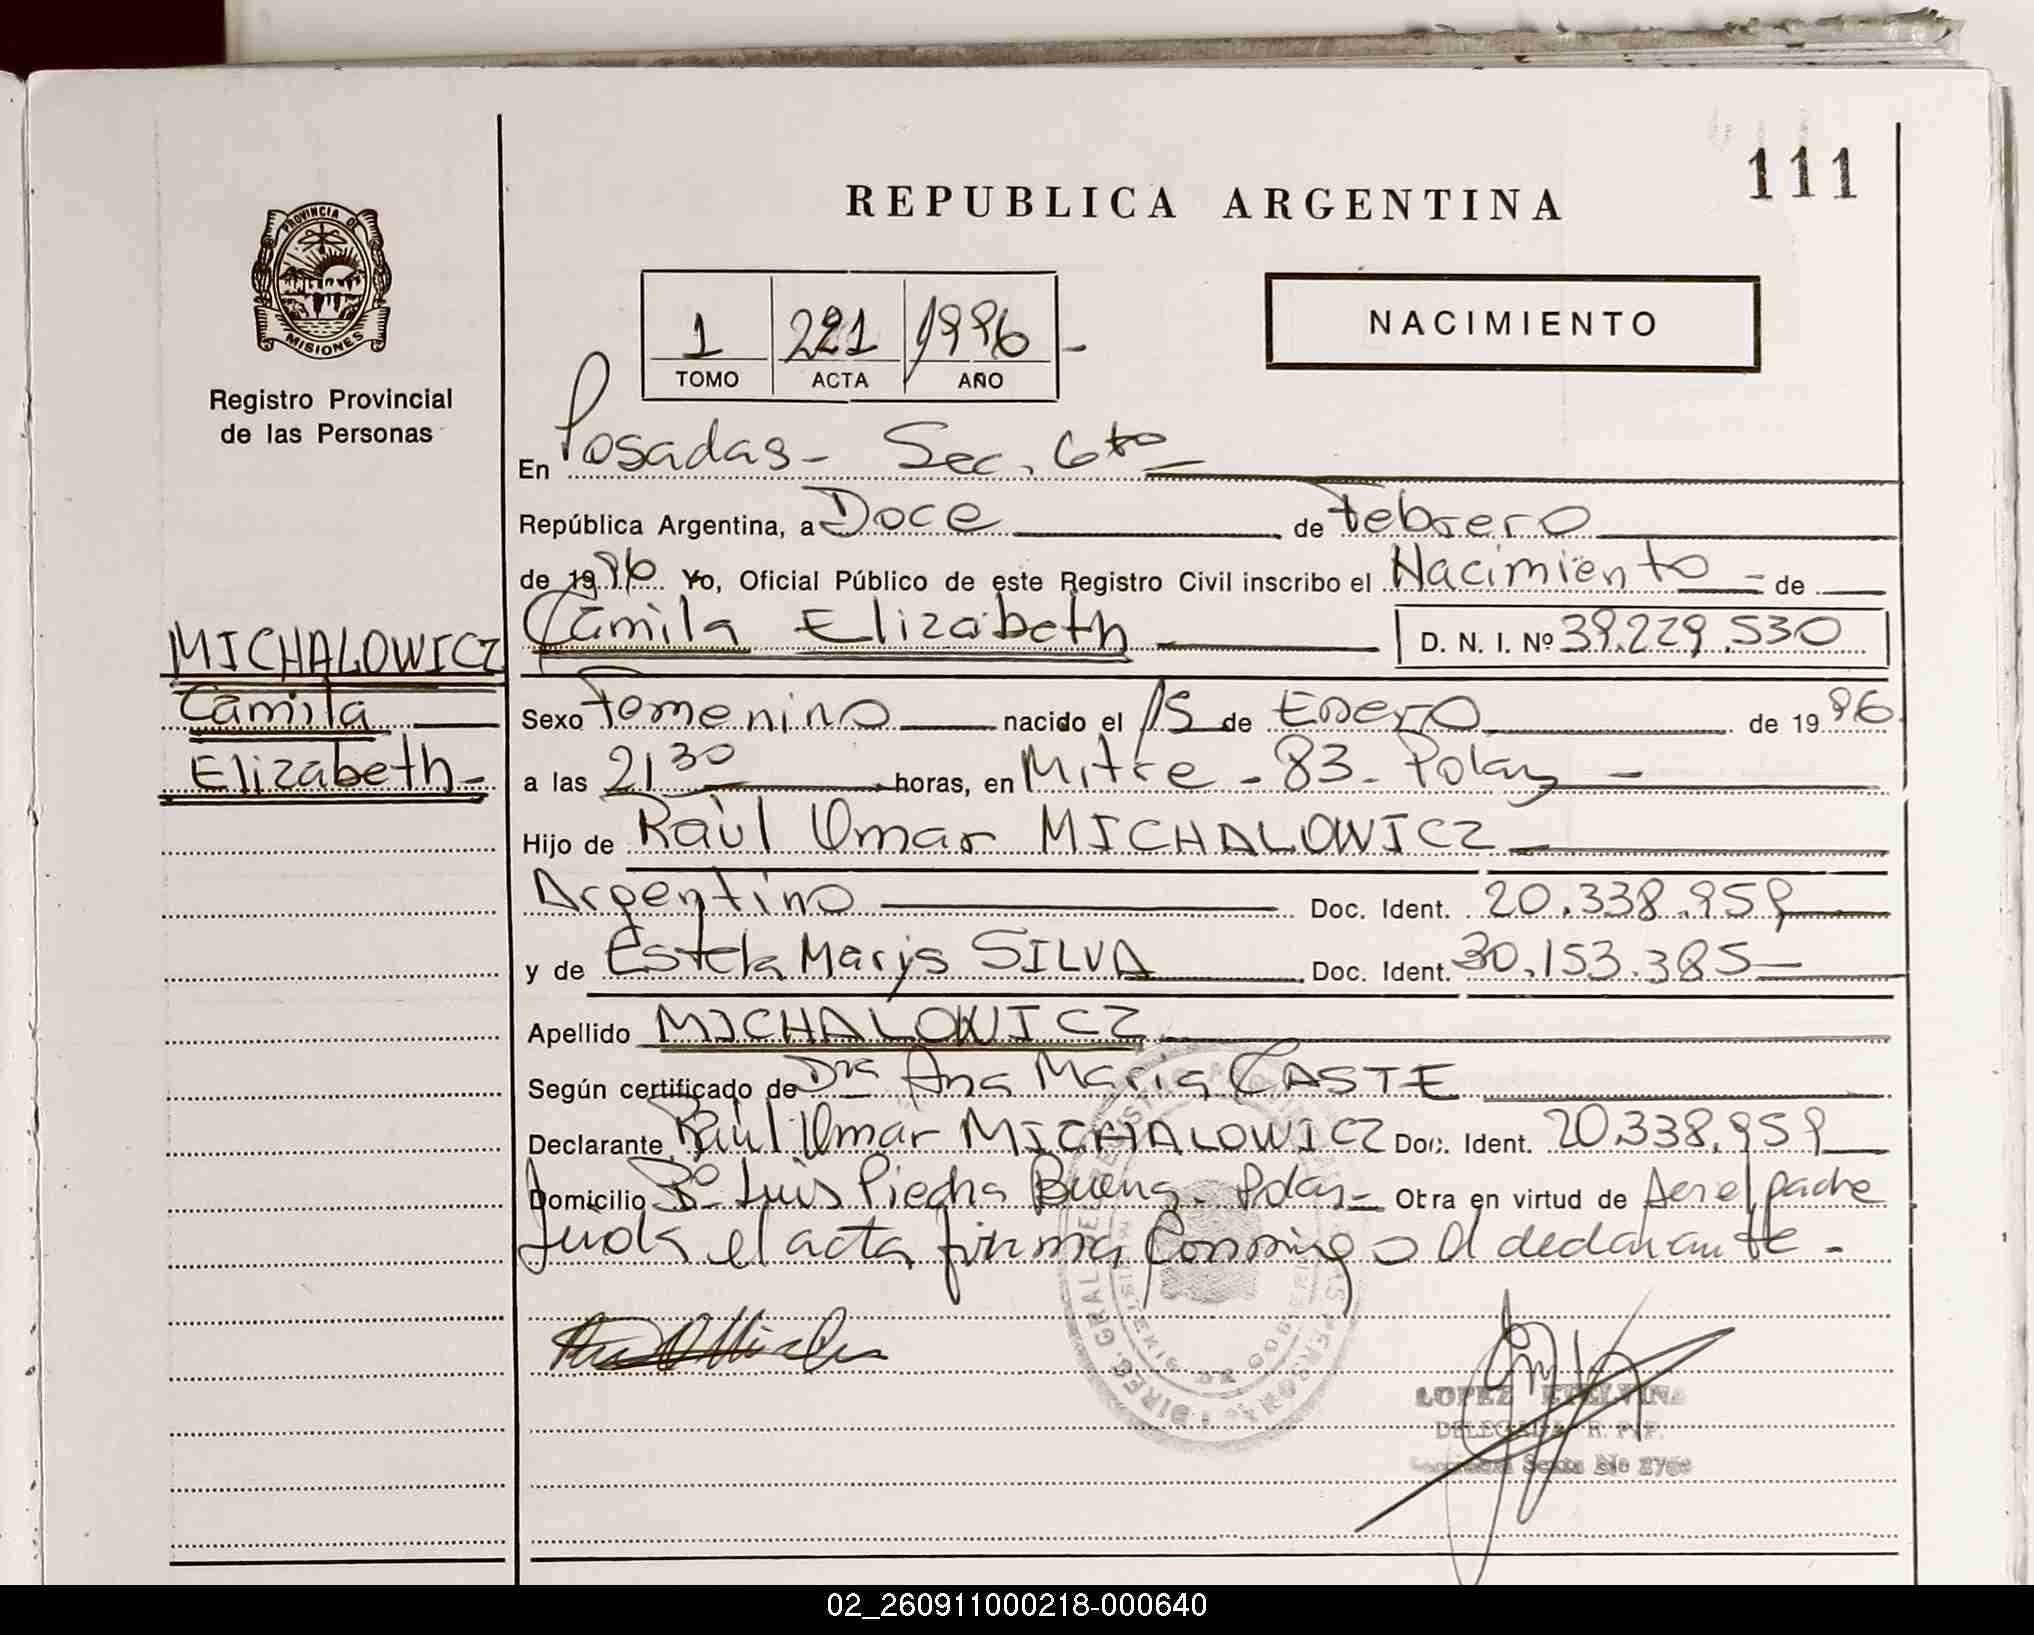 111
REPUBLICA ARGENTINA
PROVINCIA DE
MISIONES
Registro Provincial
de las Personas
1 221 1996 -
TOMO ACTA AÑO
NACIMIENTO
En Posadas - Sec. 6ta
República Argentina, a Doce de Febrero
de 1996 Yo, Oficial Público de este Registro Civil inscribo el Nacimiento = de
MICHALOWICZ
Camila
Elizabeth -
Camila Elizabeth D. N. I. Nº 39.229.530
Sexo Femenino nacido el 15 de Enero de 1996
a las 21 30 horas, en Mitre - 83 - Pdas -
Hijo de Raùl Omar MICHALOWICZ
Argentino Doc. Ident. 20.338.959
y de Estela Marys SILVA Doc. Ident. 30.153.385
Apellido MICHALOWICZ
Según certificado de Dra Ana Maria CASTE
Declarante Raùl Omar MICHALOWICZ Doc. Ident. 20.338.959
Domicilio Bº Luis Piedra Buena - Pdas - Otra en virtud de ser el padre
Leida el acta firma conmigo el declarante -
LOPEZ ETELVINA
DELEGADA R. P. P.
Sexta
02_260911000218-000640